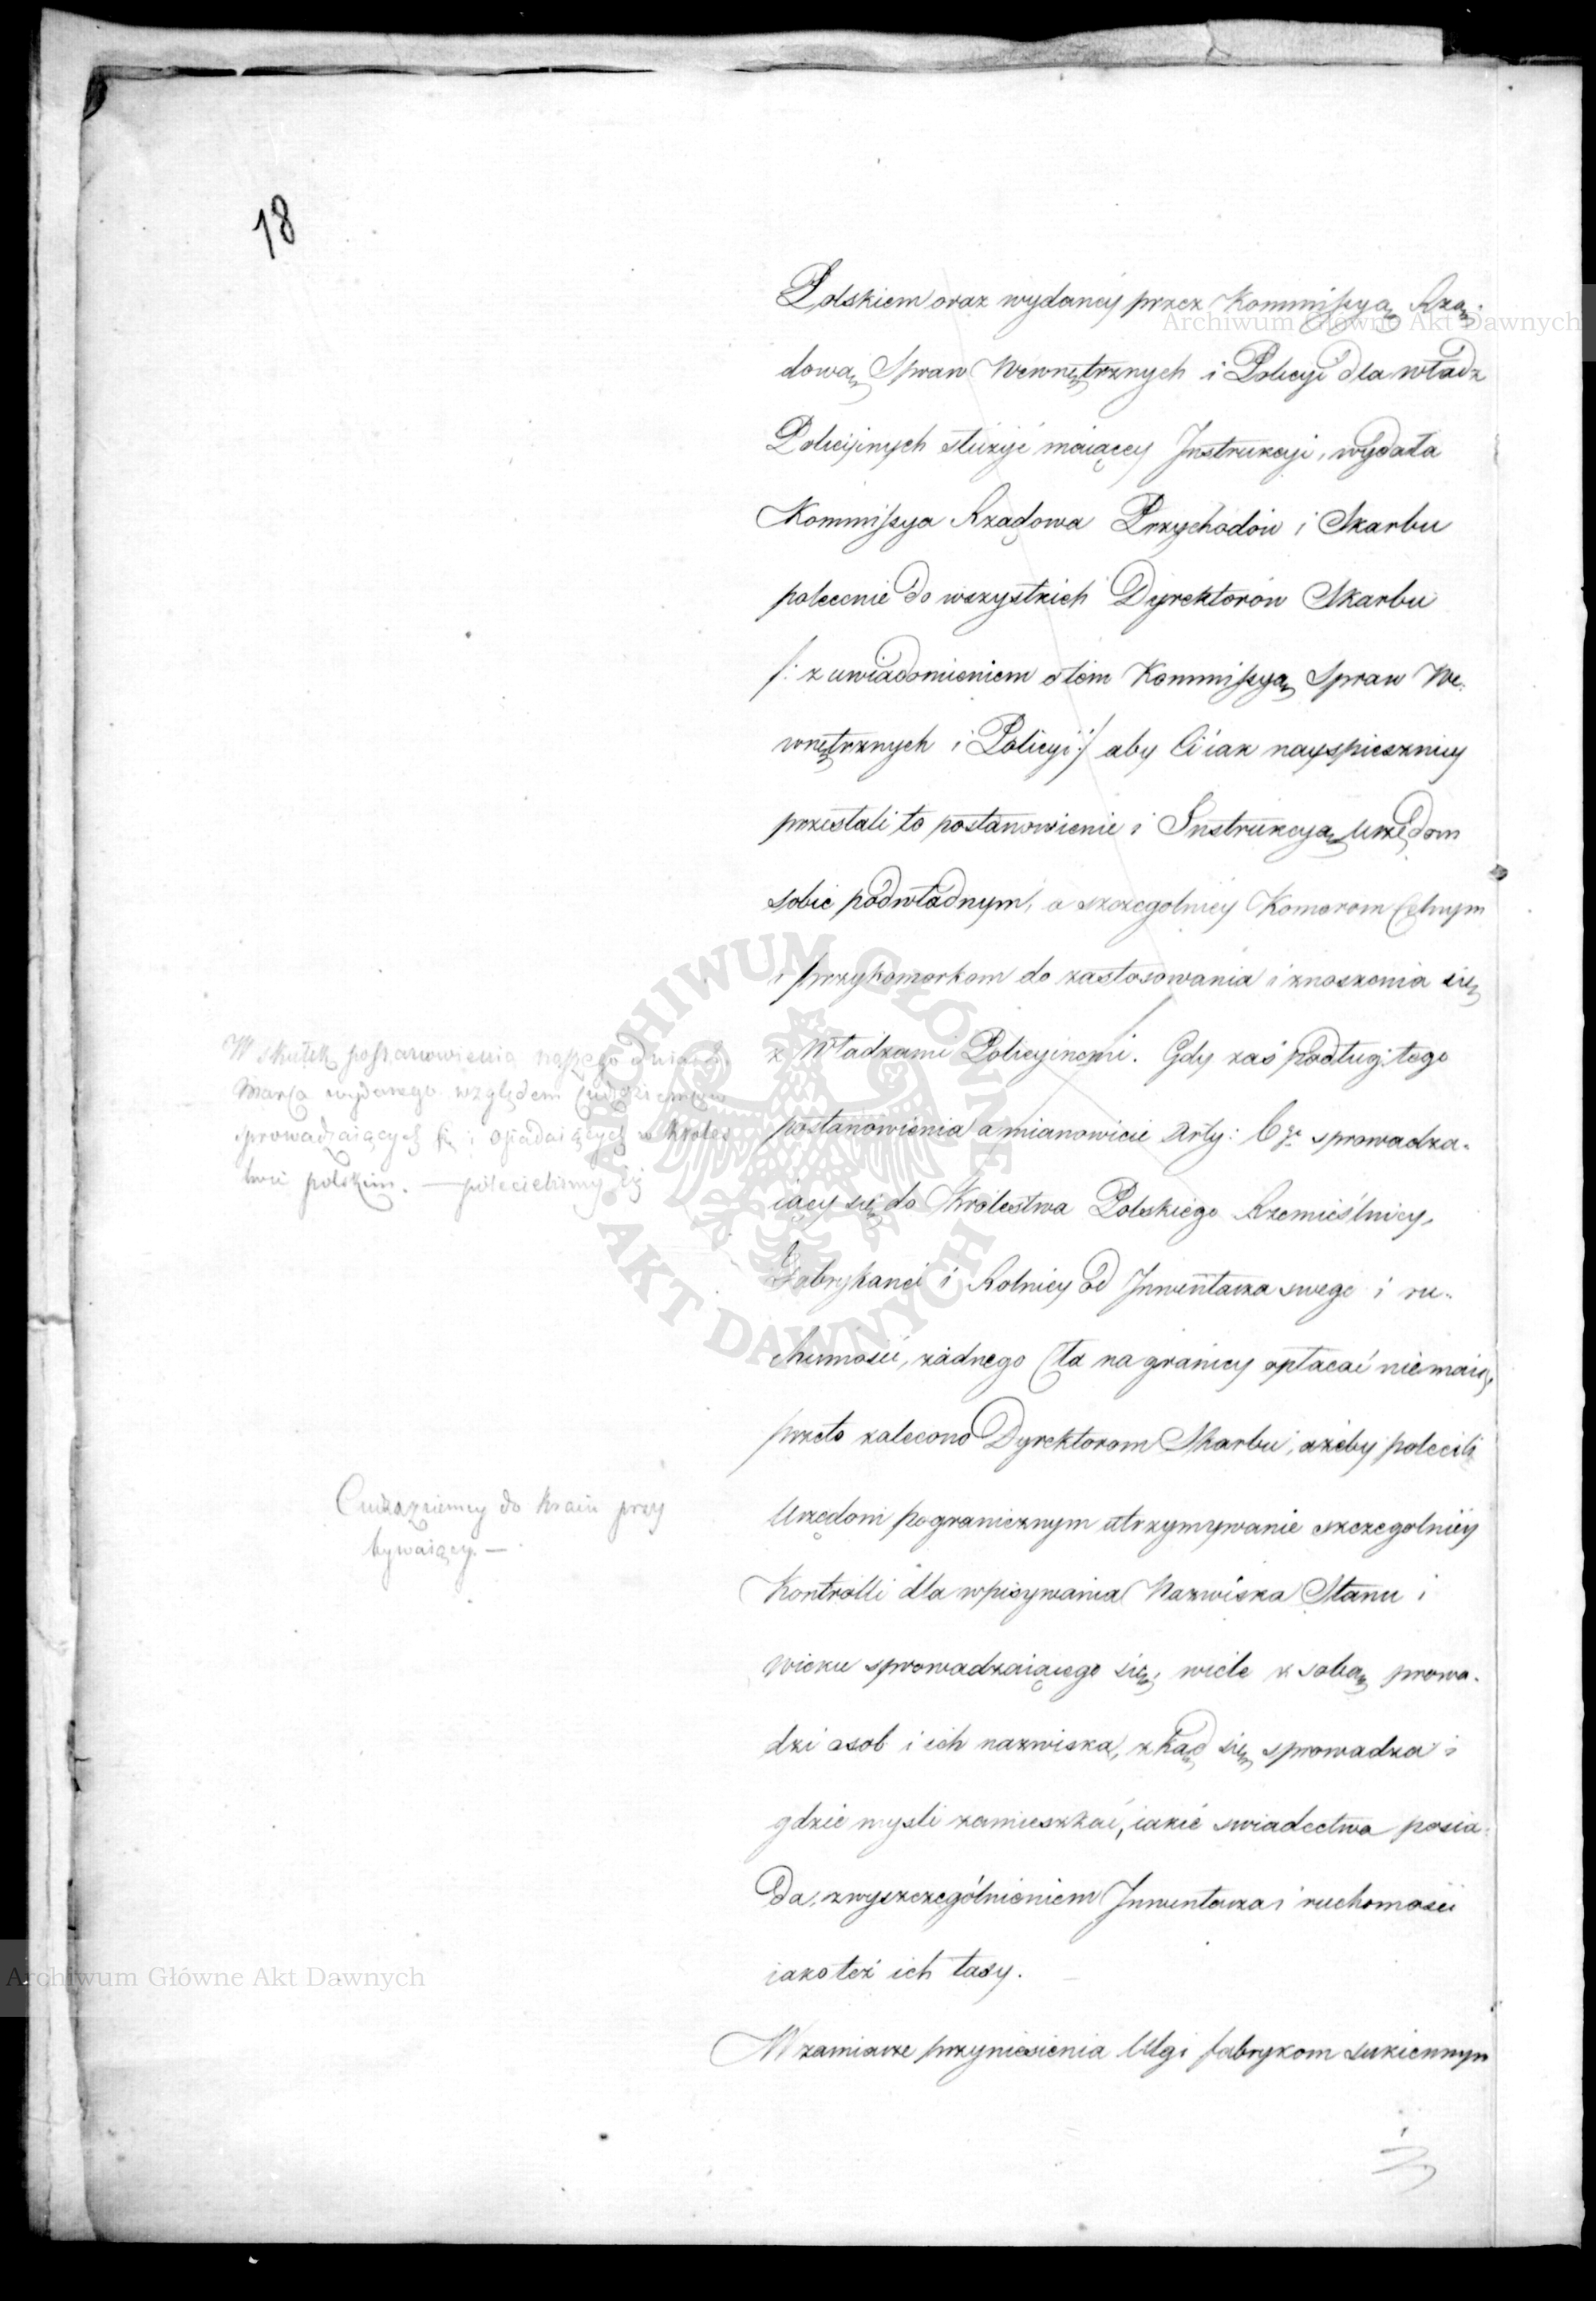 18
Polskiem oraz wydaney przez Kommissyą Rzą-
dową Spraw Wewnętrznych i Policyi dla władz
Policyinych służyć maiącey Instrukcyi, wydała
Kommissya Rządowa Przychodów i Skarbu
polecenie do wszystkich Dyrektorów Skarbu
/: z uwiadomieniem o tém Kommissyą Spraw We-
wnętrznych i Policyi :/ aby Ci iak nayspieszniey
przesłali to postanowienie i Instrukcyą Urzędom
sobie podwładnym, a szczegolniey Komorom Celnym
i przykomorkom do zastosowania i znoszenia się
z Władzami Policyinemi. Gdy zaś podług tego
postanowienia a mianowicie Arty: 6go sprowadza-
iący się do Królestwa Polskiego Rzemieślnicy,
Fabrykanci i Rolnicy od Inwentarza swego i ru-
chomości, żadnego Cła na granicy opłacać nie maią,
przeto zalecono Dyrektorom Skarbu, ażeby polecili
Urzędom pogranicznym utrzymywanie szczegolniey
Kontrolli dla wpisywania Nazwiska Stanu i
wieku sprowadzaiącego się, wiele z sobą prowa-
dzi osob i ich nazwiska, zkąd się sprowadza i
gdzie mysli zamieszkać, iakie swiadectwa posia-
da, z wyszczególnieniem Inwentarza i ruchomości
iako też ich taxy.
W zamiarze przyniesienia Ulgi fabrykom sukiennym
W skutek postanowienia naszego dnia
Marca wydanego względem Cudzoziemców
sprowadzaiących się i osiadaiących w Króles
twie polskim. — poleciliśmy
Cudzoziemcy do kraiu przy
bywaiący. —
Archiwum Główne Akt Dawnych
ARCHIWUM GŁÓWNE
AKT DAWNYCH
Archiwum Główne Akt Dawnych